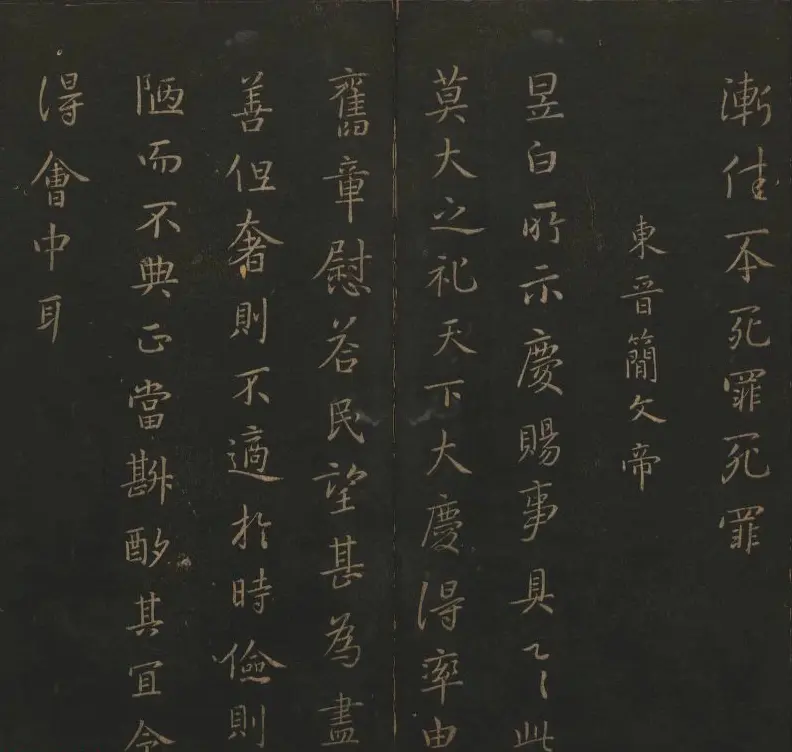 漸佳不死罪死罪
東晉簡文帝
昱白所示慶賜事具 此
莫大之祀天下大慶得率由
舊章慰荅民望甚為盡
善但奢則不適於時儉則
陋而不典正當斟酌其宜令
得會中耳